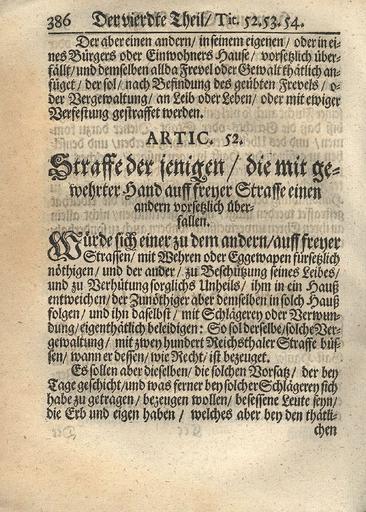 386 Der vierdte Theil/ Tit. 52.53.54.
Der aber einen andern/ in seinem eigenen/ oder in ei-
nes Bürgers oder Einwohners Hause/ vorsetzlich über-
fällt/ und demselben allda Frevel oder Gewalt thätlich an-
füget/ der sol/ nach Befindung des geübten Frevels/ o-
der Vergewaltung/ an Leib oder Leben/ oder mit ewiger
Verfestung gestraffet werden.
ARTIC. 52.
Straffe der jenigen/ die mit ge-
wehrter Hand auff freyer Strasse einen
andern vorsetzlich über-
fallen.
Würde sich einer zu dem andern/ auff freyer
Strassen/ mit Wehren oder Eggewapen fürsetzlich
nöthigen/ und der ander/ zu Beschützung seines Leibes/
und zu Verhütung sorglichs Unheils/ ihm in ein Hauß
entweichen/ der Zunöthiger aber demselben in solch Hauß
folgen/ und ihn daselbst/ mit Schlägerey oder Verwun-
dung/ eigenthätlich beleidigen: So sol derselbe/ solche Ver-
gewaltung/ mit zwey hundert Reichsthaler Straffe büs-
sen/ wann er dessen/ wie Recht/ ist bezeuget.
Es sollen aber dieselben/ die solchen Vorsatz/ der bey
Tage geschicht/ und was ferner bey solcher Schlägerey sich
habe zu getragen/ bezeugen wollen/ besessene Leute seyn/
die Erb und eigen haben/ welches aber bey den thätli-
chen